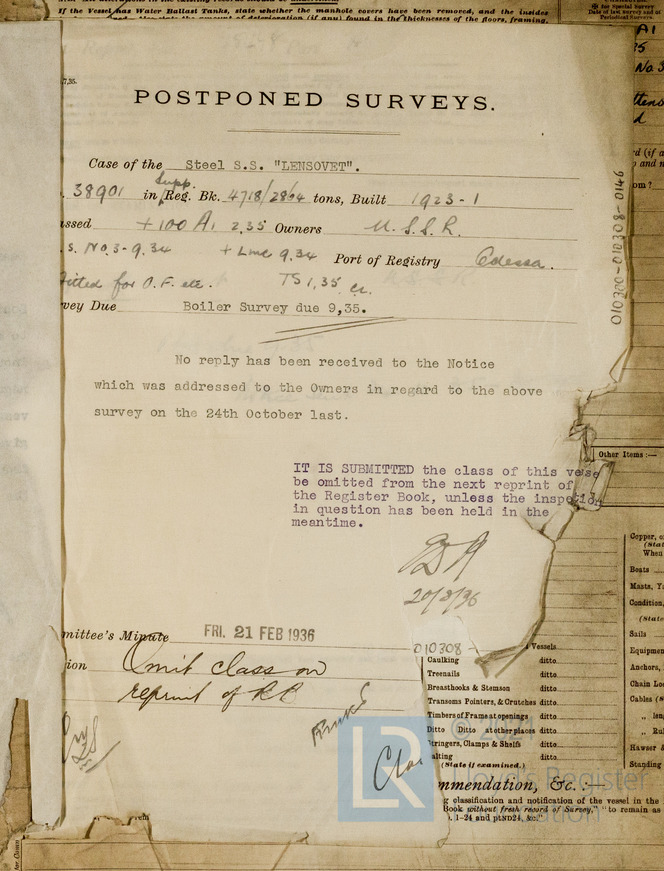 If the Vessel has Water Ballast Tanks, state whether the manhole covers have been removed, and the insides
7,35.
POSTPONED SURVEYS.
Case of the Steel S.S. "LENSOVET".
38901 in Supp. Reg. Bk. 4718/2864 tons, Built 1923-1
ssed +100 A1 2,35 Owners U.S.S.R.
s. No.3-9.34 + LMC 9.34 Port of Registry Odessa.
fitted for O.F. etc. TS 1,35 CL.
vey Due Boiler Survey due 9,35.
No reply has been received to the Notice
which was addressed to the Owners in regard to the above
survey on the 24th October last.
IT IS SUBMITTED the class of this vesse
be omitted from the next reprint of
the Register Book, unless the inspection
in question has been held in the
meantime.
20/2/36
mittee's Minute FRI. 21 FEB 1936
ion Omit class on
reprint of RB
010300-010308-0146
010308-
Other Items :—
Vessels.
Caulking ditto
Treenails ditto
Breasthooks & Stemson ditto
Transoms Pointers, & Crutches ditto
Timbers of Frame at openings ditto
Ditto Ditto at other places ditto
Stringers, Clamps & Shelfs ditto
alting ditto
(State if examined.)
Copper, o
When
Boats
Masts, Ya
Condition,
Sails
Equipmen
Anchors,
Chain Loc
Cables (S
Hawser &
Standing
mmendation, &c. :—
g classification and notification of the vessel in the
Book without fresh record of Survey," "to remain as
LR
© 2021
Lloyd's Register
Foundation